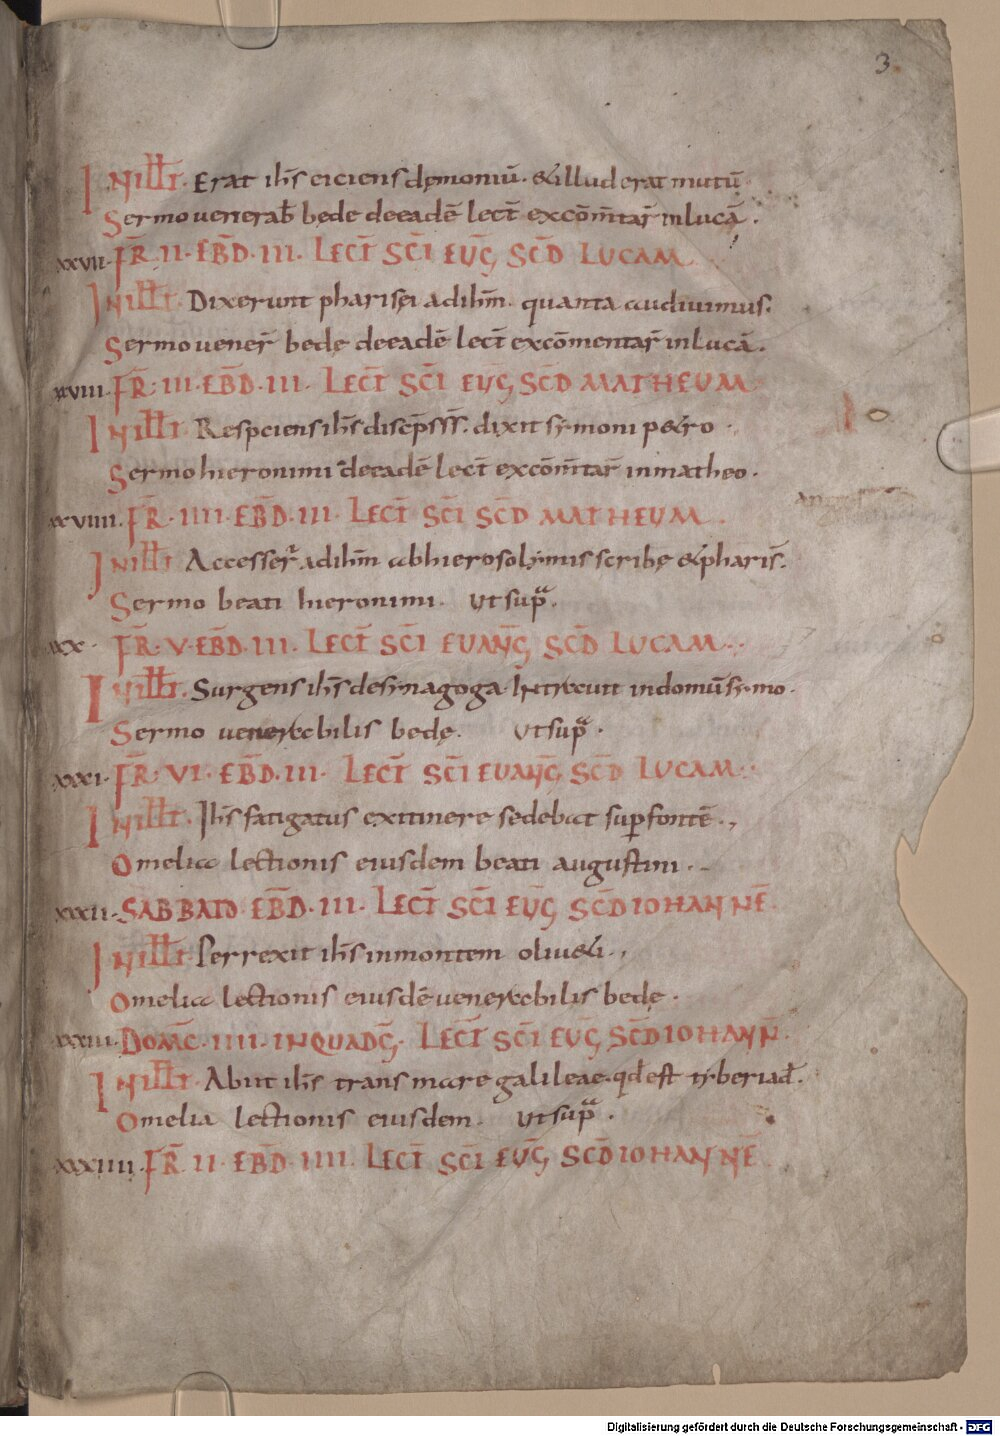 3
IN ILLT. Erat ihs̄ eiciens dęmoniū. & illud erat mutū.
Sermo venerab̄ bedę de eadē lect̄ ex com̄tar̄ in lucā.
XXVII. FR̄. II. EBD̄. III. LECT̄ SC̄I EUḠ SCD̄ LUCAM
IN ILLT. Dixerunt pharisęi ad ihm̄. quanta audivimus.
Sermo uener̄ bedę de eadē lect̄ ex cōmentar̄ in lucā.
XXVIII. FR̄. III. EBD̄. III. LECT̄ SC̄I EUḠ SCD̄ MATHEUM
IN ILLT. Respiciens ihs̄ discip̄ dixit symoni petro.
Sermo hieronimi de eadē lect̄ ex com̄tar̄ in matheo.
XXVIIII. FR̄. IIII. EBD̄. III. LECT̄ SC̄I SCD̄ MATHEUM.
IN ILLT. Accesser̄ ad ihm̄ ab hierosolymis scribę & pharis̄.
Sermo beati hieronimi. Ut sup̄a.
XXX. FR̄. V. EBD̄. III. LECT̄ SC̄I EUANḠ SCD̄ LUCAM.
IN ILLT. Surgens ihs̄ de synagoga. Intravit in domū symo.
Sermo venerabilis bedę. Ut sup̄a.
XXXI. FR̄. VI. EBD̄. III. LECT̄ SC̄I EUANḠ SCD̄ LUCAM.
IN ILLT. Ihs̄ fatigatus ex itinere sedebat sup̄ fontē.
Omelia lectionis eiusdem beati augustini.
XXXII. SABBATO. EBD̄. III. LECT̄ SC̄I EUḠ SCD̄ IOHANNĒ.
IN ILLT. Perrexit ihs̄ in montem oliu&i.
Omelia lectionis eiusdē uenerabilis bedę.
XXXIII. DOMC̄. IIII. IN QUADḠ. LECT̄ SC̄I EUḠ SCD̄ IOHANN̄.
IN ILLT. Abiit ihs̄ trans mare galileae. qd̄ est tyberiad̄.
Omelia lectionis eiusdem. Ut sup̄a.
XXXIIII. FR̄. II. EBD̄. IIII. LECT̄ SC̄I EUḠ SCD̄ IOHANNĒ
Digitalisierung gefördert durch die Deutsche Forschungsgemeinschaft - DFG